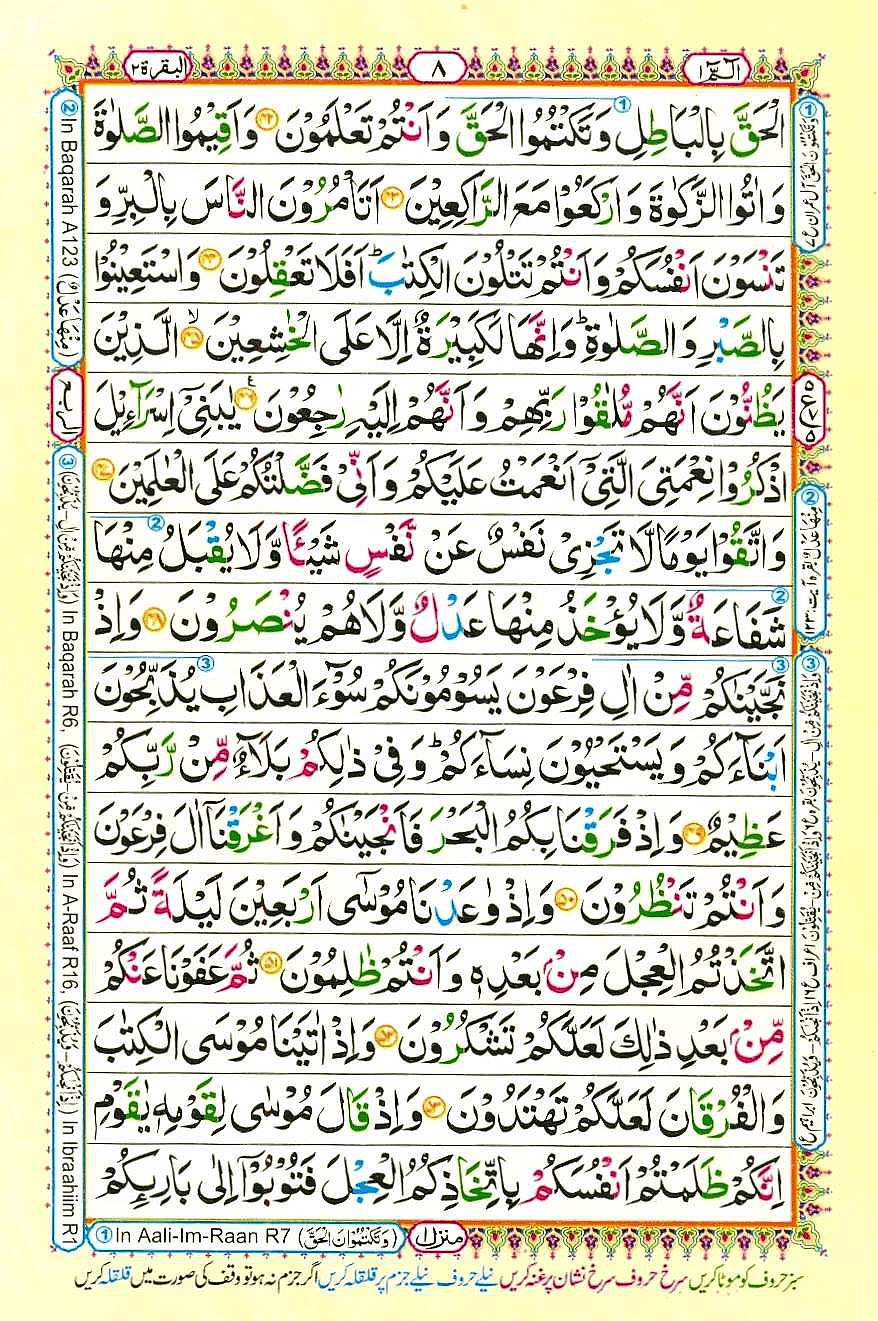 البقرة ۲
۸
الٓمّٓ ۱
الْحَقَّ بِالْبَاطِلِ وَتَكْتُمُوا الْحَقَّ وَاَنْتُمْ تَعْلَمُوْنَ ﴿۴۲﴾ وَاَقِيْمُوا الصَّلٰوةَ
وَاٰتُوا الزَّكٰوةَ وَارْكَعُوْا مَعَ الرّٰكِعِيْنَ ﴿۴۳﴾ اَتَاْمُرُوْنَ النَّاسَ بِالْبِرِّ وَ
تَنْسَوْنَ اَنْفُسَكُمْ وَاَنْتُمْ تَتْلُوْنَ الْكِتٰبَ ؕ اَفَلَا تَعْقِلُوْنَ ﴿۴۴﴾ وَاسْتَعِيْنُوْا
بِالصَّبْرِ وَالصَّلٰوةِ ؕ وَاِنَّهَا لَكَبِيْرَةٌ اِلَّا عَلَى الْخٰشِعِيْنَ ﴿۴۵﴾ۙ الَّذِيْنَ
يَظُنُّوْنَ اَنَّهُمْ مُّلٰقُوْا رَبِّهِمْ وَاَنَّهُمْ اِلَيْهِ رٰجِعُوْنَ ﴿۴۶﴾ ع يٰبَنِىْٓ اِسْرَآءِيْلَ
اذْكُرُوْا نِعْمَتِىَ الَّتِىْٓ اَنْعَمْتُ عَلَيْكُمْ وَاَنِّىْ فَضَّلْتُكُمْ عَلَى الْعٰلَمِيْنَ ﴿۴۷﴾
وَاتَّقُوْا يَوْمًا لَّا تَجْزِىْ نَفْسٌ عَنْ نَّفْسٍ شَيْـًٔا وَّلَا يُقْبَلُ مِنْهَا
شَفَاعَةٌ وَّلَا يُؤْخَذُ مِنْهَا عَدْلٌ وَّلَا هُمْ يُنْصَرُوْنَ ﴿۴۸﴾ وَاِذْ
نَجَّيْنٰكُمْ مِّنْ اٰلِ فِرْعَوْنَ يَسُوْمُوْنَكُمْ سُوْٓءَ الْعَذَابِ يُذَبِّحُوْنَ
اَبْنَآءَكُمْ وَيَسْتَحْيُوْنَ نِسَآءَكُمْ ؕ وَفِىْ ذٰلِكُمْ بَلَآءٌ مِّنْ رَّبِّكُمْ
عَظِيْمٌ ﴿۴۹﴾ وَاِذْ فَرَقْنَا بِكُمُ الْبَحْرَ فَاَنْجَيْنٰكُمْ وَاَغْرَقْنَآ اٰلَ فِرْعَوْنَ
وَاَنْتُمْ تَنْظُرُوْنَ ﴿۵۰﴾ وَاِذْ وٰعَدْنَا مُوْسٰٓى اَرْبَعِيْنَ لَيْلَةً ثُمَّ
اتَّخَذْتُمُ الْعِجْلَ مِنْۢ بَعْدِهٖ وَاَنْتُمْ ظٰلِمُوْنَ ﴿۵۱﴾ ثُمَّ عَفَوْنَا عَنْكُمْ
مِّنْۢ بَعْدِ ذٰلِكَ لَعَلَّكُمْ تَشْكُرُوْنَ ﴿۵۲﴾ وَاِذْ اٰتَيْنَا مُوْسَى الْكِتٰبَ
وَالْفُرْقَانَ لَعَلَّكُمْ تَهْتَدُوْنَ ﴿۵۳﴾ وَاِذْ قَالَ مُوْسٰى لِقَوْمِهٖ يٰقَوْمِ
اِنَّكُمْ ظَلَمْتُمْ اَنْفُسَكُمْ بِاتِّخَاذِكُمُ الْعِجْلَ فَتُوْبُوْٓا اِلٰى بَارِئِكُمْ
② In Baqarah A123 (مِنْهَا عَدْلٌ)
الربع
③ (وَاِذْ نَجَّيْنٰكُمْ مِّنْ اٰلِ - يُذَبِّحُوْنَ) In Baqarah R6, (وَاِذْ اَنْجَيْنٰكُمْ مِّنْ - يُقَتِّلُوْنَ) In A-Raaf R16, (اِذْ اَنْجٰىكُمْ - وَيُذَبِّحُوْنَ) In Ibraahiim R1
① In Aali-Im-Raan R7 (وَتَكْتُمُوْنَ الْحَقَّ)
منزل ۱
سبز حروف کو موٹا کریں سرخ حروف سرخ نشان پر غنہ کریں نیلے حروف نیلے جزم پر قلقلہ کریں اگر جزم نہ ہو تو وقف کی صورت میں قلقلہ کریں